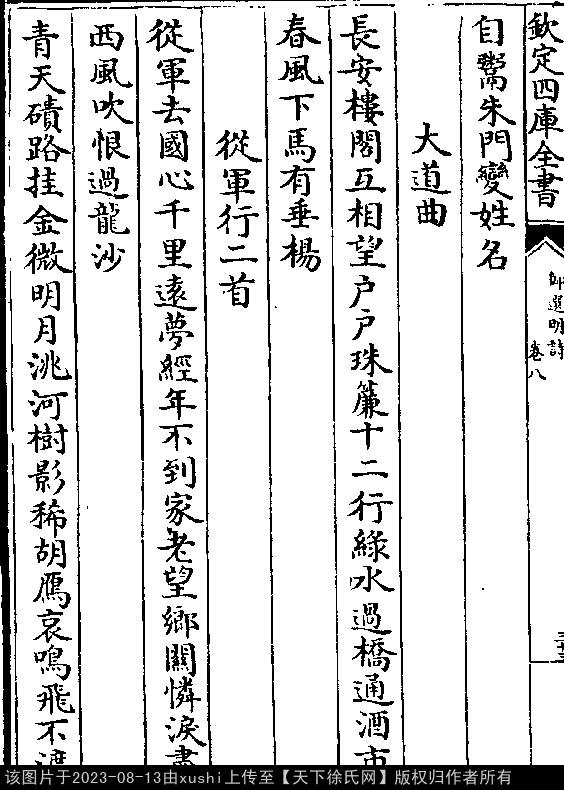 欽定四庫全書
御選明詩
卷八
自鬻朱門變姓名
大道曲
長安樓閣互相望户户珠簾十二行緑水過橋通酒市
春風下馬有垂楊
從軍行二首
從軍去國心千里遠夢經年不到家老望鄉關憐淚盡
西風吹恨過龍沙
青天磧路挂金微明月洮河樹影稀胡鴈哀鳴飛不渡
该图片于2023-08-13由xushi上传至【天下徐氏网】版权归作者所有